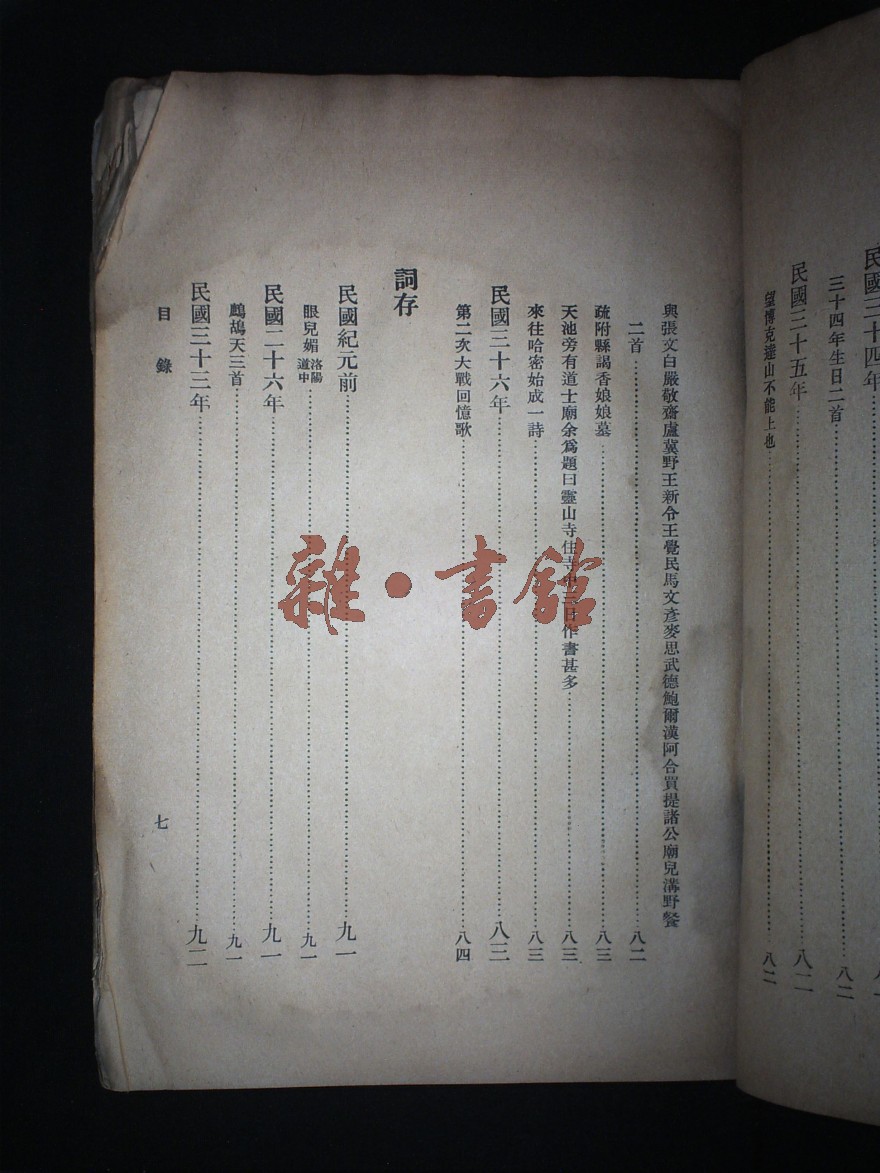 民國三十四年
三十四年生日二首……八二
民國三十五年……八二
望博克達山不能上也……八二
與張文白嚴敬齋盧冀野王新令王覺民馬文彥麥思武德鮑爾漢阿合買提諸公廟兒溝野餐
二首……八二
疏附縣謁香娘娘墓……八三
天池旁有道士廟余爲題曰靈山寺住寺中三日作書甚多……八三
來往哈密始成一詩……八三
民國三十六年……八三
第二次大戰回憶歌……八四
詞存
民國紀元前……九一
眼兒媚洛陽道中……九一
民國二十六年……九一
鷓鴣天三首……九一
民國三十三年……九二
目錄
七
雜·書館